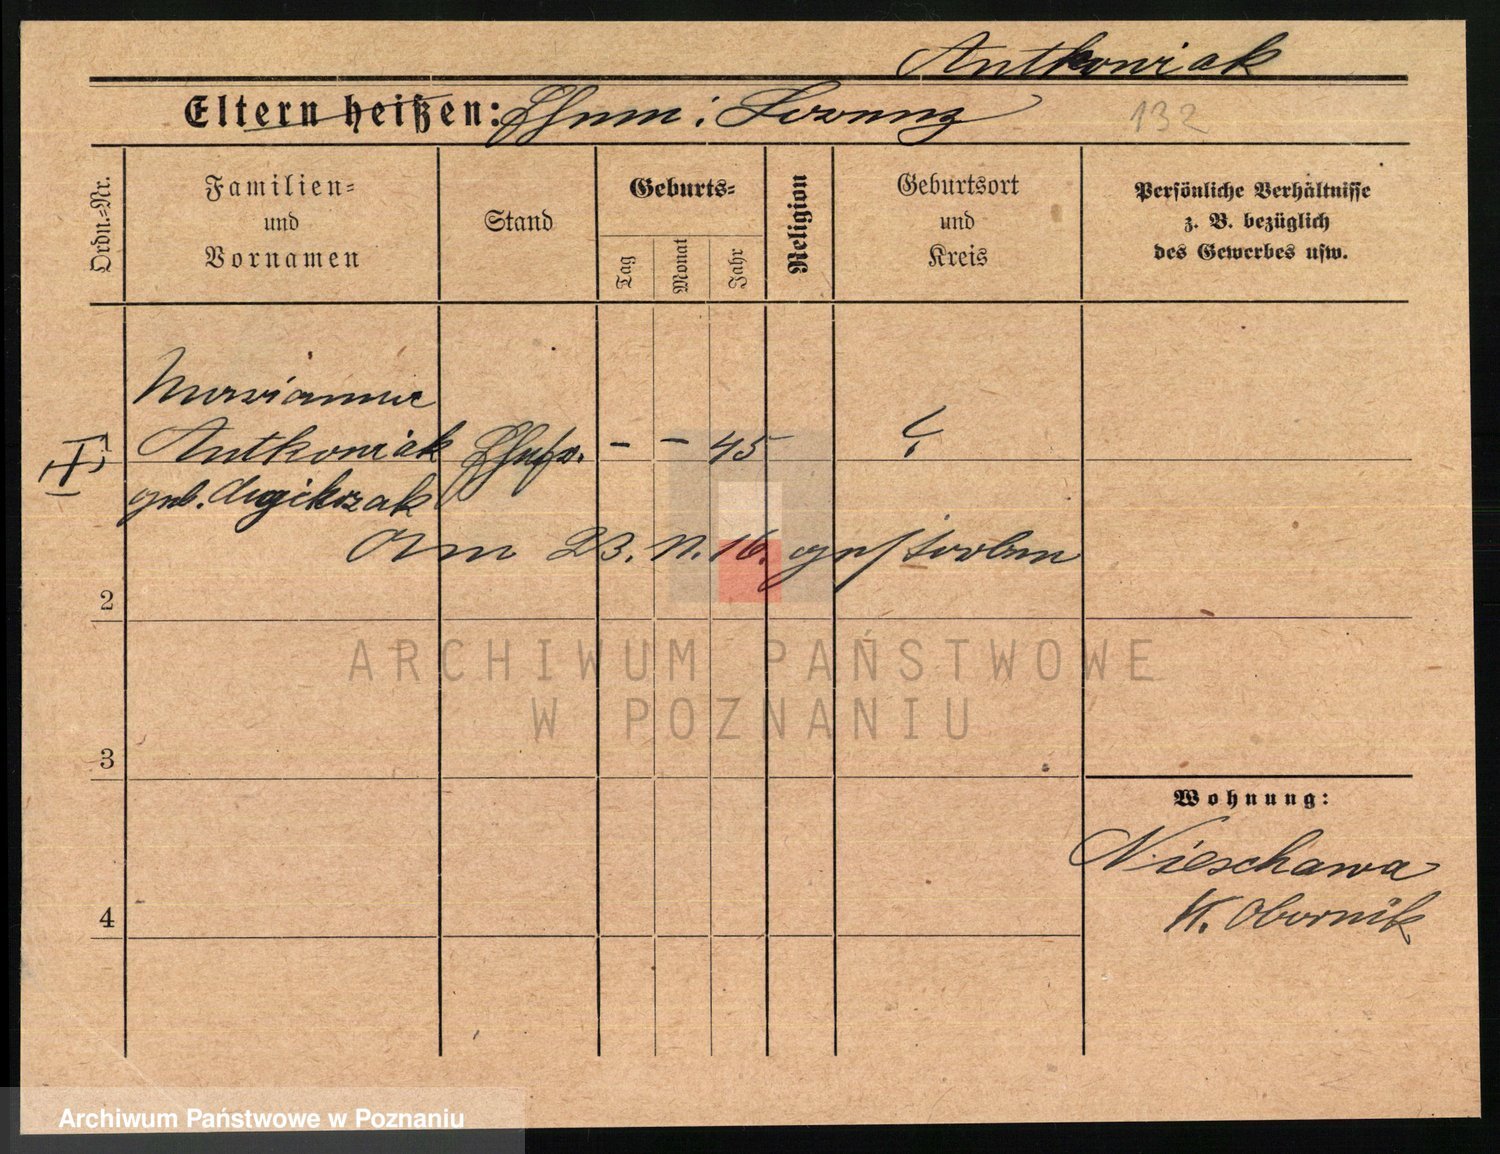 Antkowiak
Eltern heißen: Ehem: Lorenz
132
Ordn.-Nr.
Familien-
und
Vornamen
Stand
Geburts-
Tag
Monat
Jahr
Religion
Geburtsort
und
Kreis
Persönliche Verhältnisse
z. B. bezüglich
des Gewerbes usw.
Marianne
Antkowiak
geb.
Ehefr. - - 45 ?
Am 23. 11. 16. gestorben
2
3
4
Wohnung:
Nieschawa
K. Obornik
ARCHIWUM PAŃSTWOWE
W POZNANIU
Archiwum Państwowe w Poznaniu